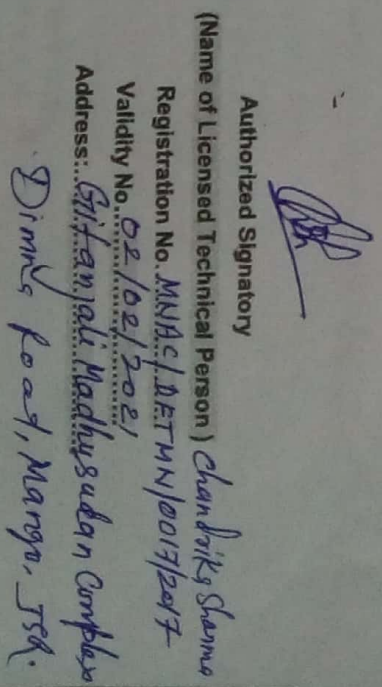 Authorized Signatory
(Name of Licensed Technical Person) Chandrika Sharma
Registration No. MNAC/DETMN/0017/2017
Validity No. 02/02/2021
Address:. Gitanjali Madhusudan Complex
Dimna Road, Mango, JSR.